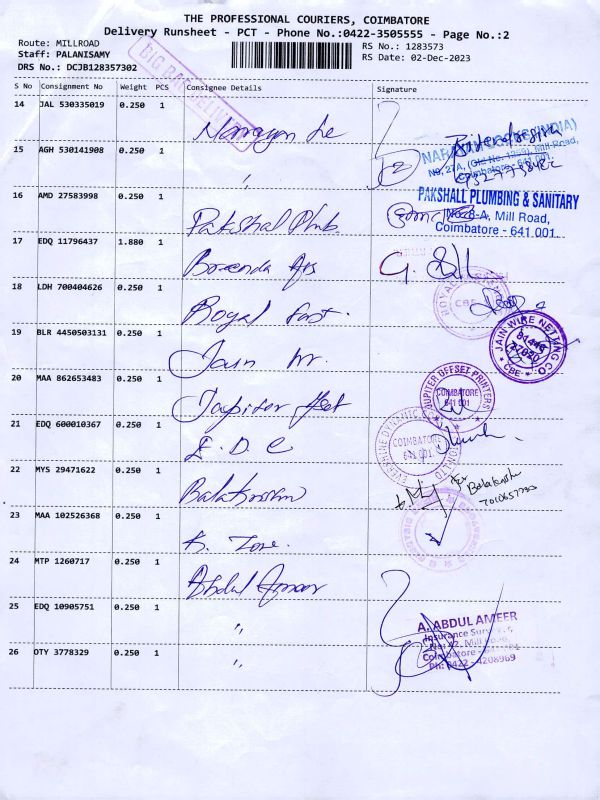 THE PROFESSIONAL COURIERS, COIMBATORE
Delivery Runsheet - PCT - Phone No.:0422-3505555 - Page No.:2
Route: MILLROAD
Staff: PALANISAMY
DRS No.: DCJB128357302
RS No.: 1283573
RS Date: 02-Dec-2023
S No Consignment No Weight PCS Consignee Details Signature
14 JAL 530335019 0.250 1
15 AGH 530141908 0.250 1 "
No. 27A, (Old No. 1269), Mill Road,
Coimbatore - 641 001.
16 AMD 27583998 0.250 1 Pakshal Plmb.
PAKSHALL PLUMBING & SANITARY
No. 8-A, Mill Road,
Coimbatore - 641 001.
17 EDQ 11796437 1.880 1
18 LDH 700404626 0.250 1 Royal Fast.
CBE
19 BLR 4450503131 0.250 1 Jain Wr.
JAIN WIRE NETTING CO
CBE
20 MAA 862653483 0.250 1 Jupiter
JUPITER OFFSET PRINTERS
COIMBATORE
641 001
21 EDQ 600010367 0.250 1 E.D.C
COIMBATORE
641 001
22 MYS 29471622 0.250 1 Balakrishnan
23 MAA 102526368 0.250 1 K. Zone.
24 MTP 1260717 0.250 1 Abdul Ameer
25 EDQ 10905751 0.250 1 "
A. ABDUL AMEER
Insurance
No: 42, Mill Road,
Coimbatore -
Ph: 0422 - 4208969
26 OTY 3778329 0.250 1 "